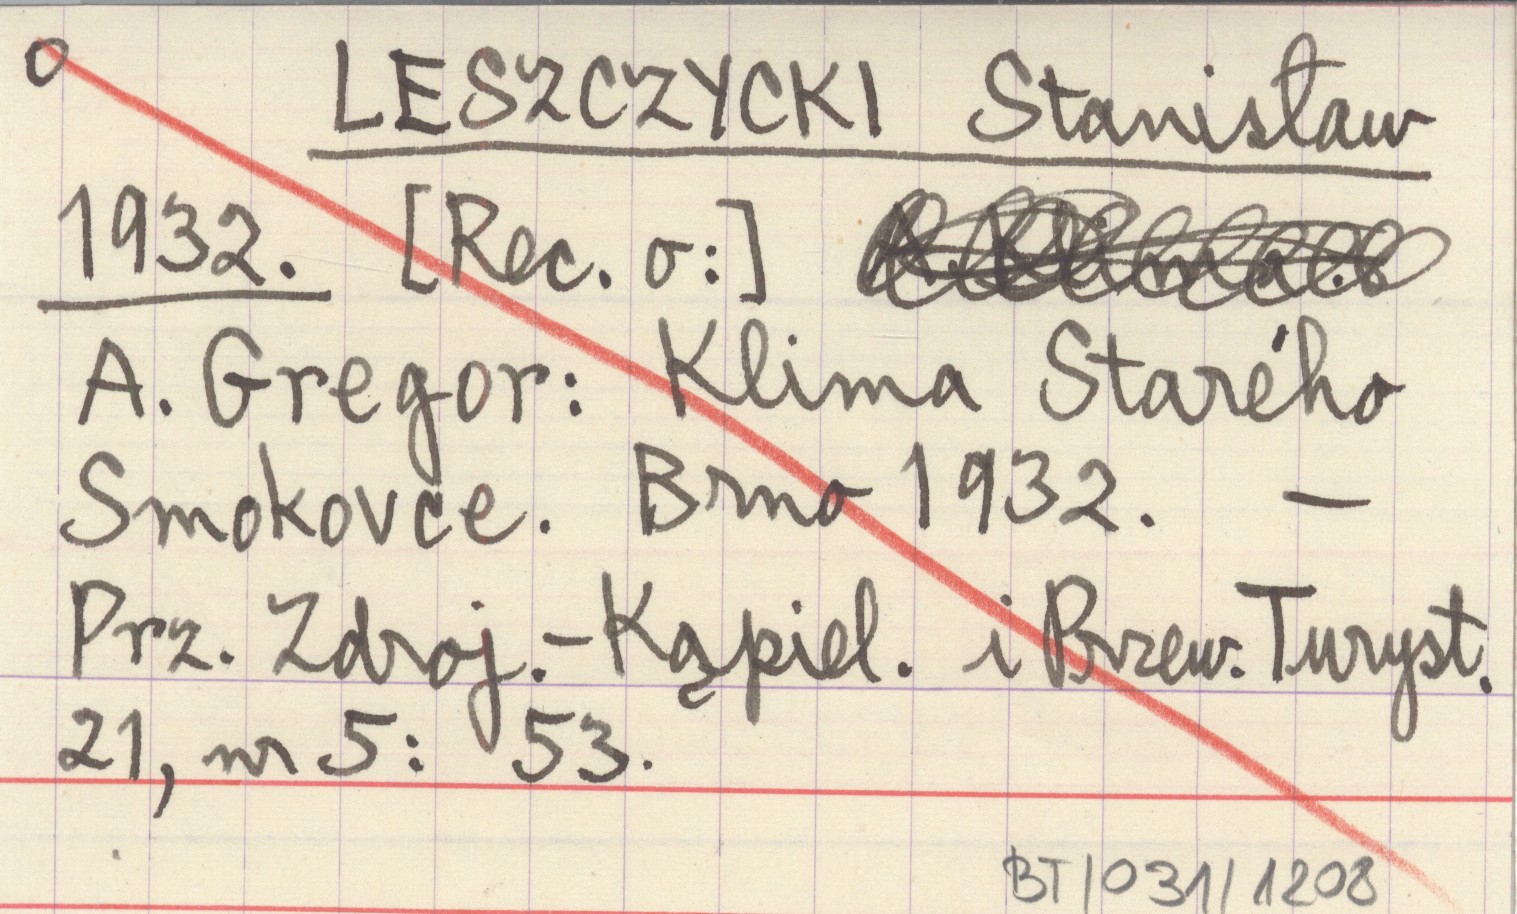 o LESZCZYCKI Stanisław
1932. [Rec. o:]
A. Gregor: Klima Starého
Smokovce. Brno 1932. —
Prz. Zdroj.-Kąpiel. i Przew. Turyst.
21, nr 5: 53.
BT/031/1208